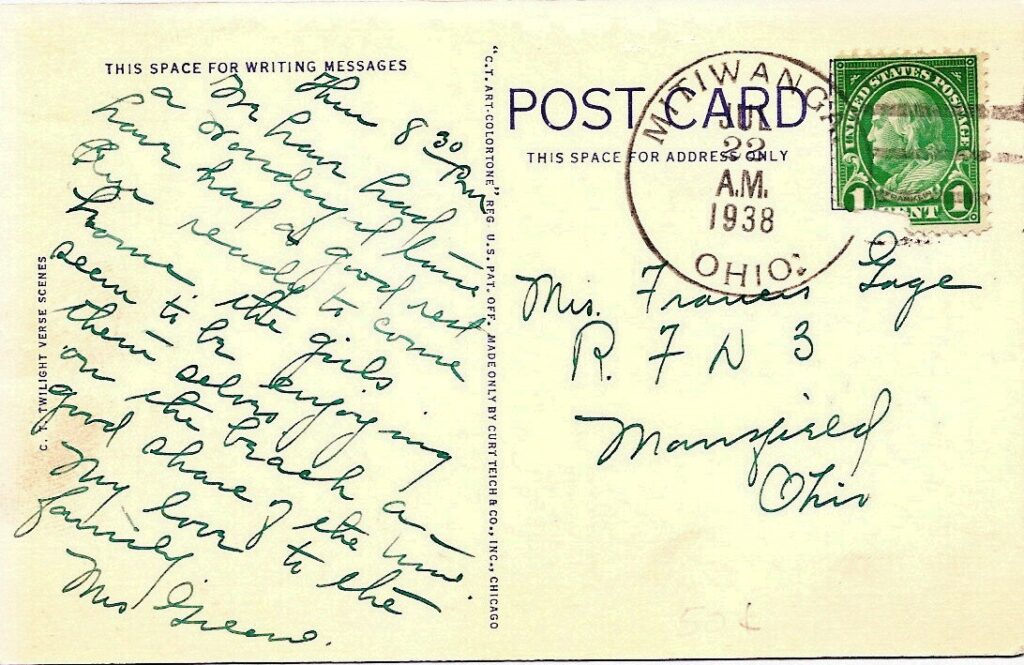 THIS SPACE FOR WRITING MESSAGES
Thur 8 30 P.M.
We have had
a wonderful time
have had a good rest
live ready to come
home the girls
seem to be enjoying
them selves
on the beach a
good share of the time.
My love to the
family
Mrs Greene.
C. T. TWILIGHT VERSE SCENES
"C.T. ART-COLORTONE" REG. U.S. PAT. OFF. MADE ONLY BY CURT TEICH & CO., INC., CHICAGO
POST CARD
THIS SPACE FOR ADDRESS ONLY
MITIWANGA
JUL
22
A.M.
1938
OHIO.
UNITED STATES POSTAGE
FRANKLIN
1 CENT 1
Mrs. Francis Gage
R. F D 3
Mansfield
Ohio
50¢